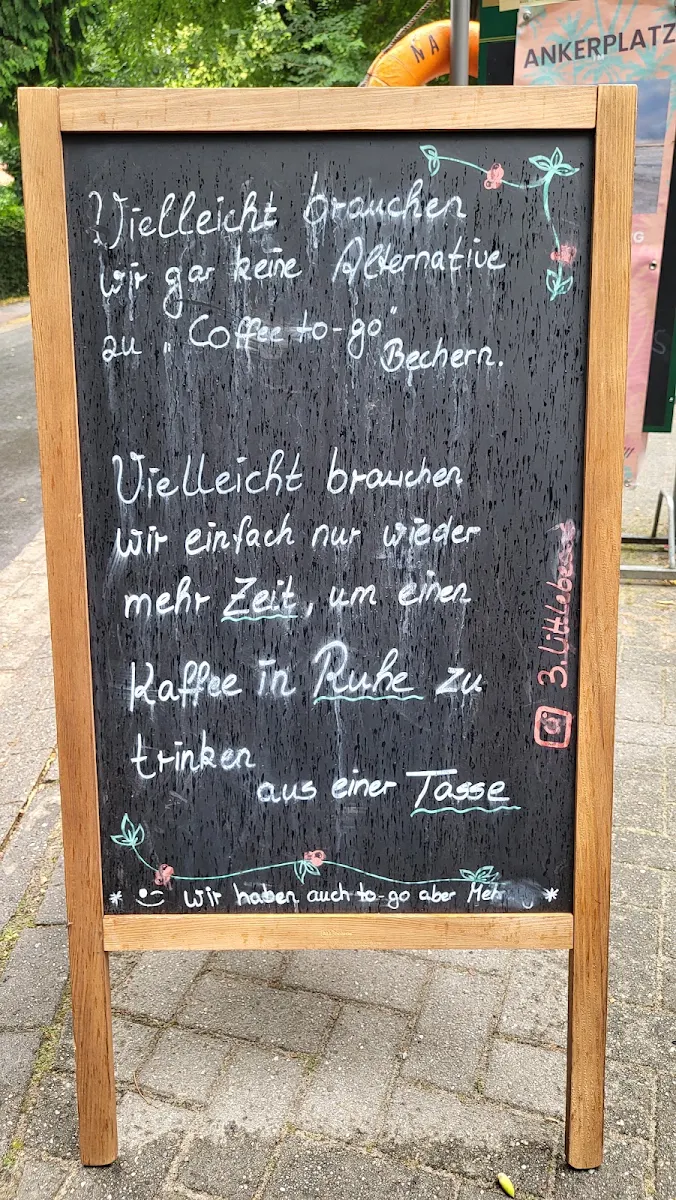 NA
ANKERPLATZ
Vielleicht brauchen
wir gar keine Alternative
zu „Coffee to-go"
Bechern.
Vielleicht brauchen
wir einfach nur wieder
mehr Zeit, um einen
Kaffee in Ruhe zu
trinken
aus einer Tasse
3.Littlebe
* wir haben auch to-go aber *